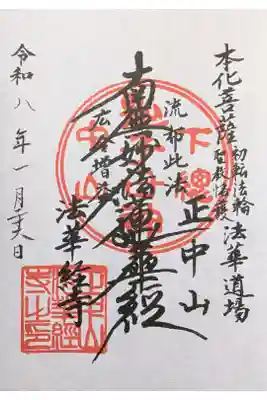 本化菩薩
初転法輪
法華道場
正中山
流布此法
南無妙法蓮華経
広令増益
法華経寺
令和八年一月
下總